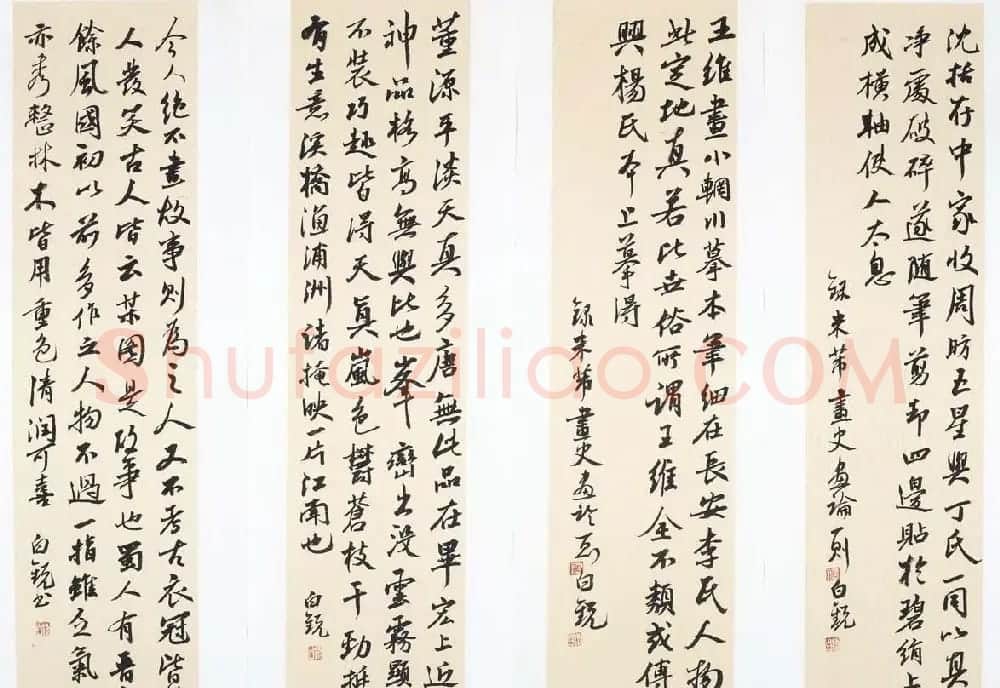 沈括存中家收周昉五星與丁氏一同以其
净處破碎遂随筆剪却四邊貼於碧絹上
成横軸使人太息
録米芾畫史畫論一則 白銳
王維畫小輞川摹本筆細在長安李氏人物
此定地真若比世俗所謂王維全不類或傳
興楊氏本上摹得
録米芾畫史 白銳
董源平淡天真多唐無此品在畢宏上近
神品格高無與比也峯巒出没雲霧顯
不裝巧趣皆得天真嵐色鬱蒼枝干勁挺
有生意溪橋漁浦洲渚掩映一片江南也
白銳
今人绝不畫故事则為之人又不考古衣冠皆
人發笑古人皆云某圖是故事也蜀人有晋
餘風國初以前多作之人物不過一指雖乏氣
亦秀整林木皆用重色清润可喜
白銳书
Shufaziliao.COM